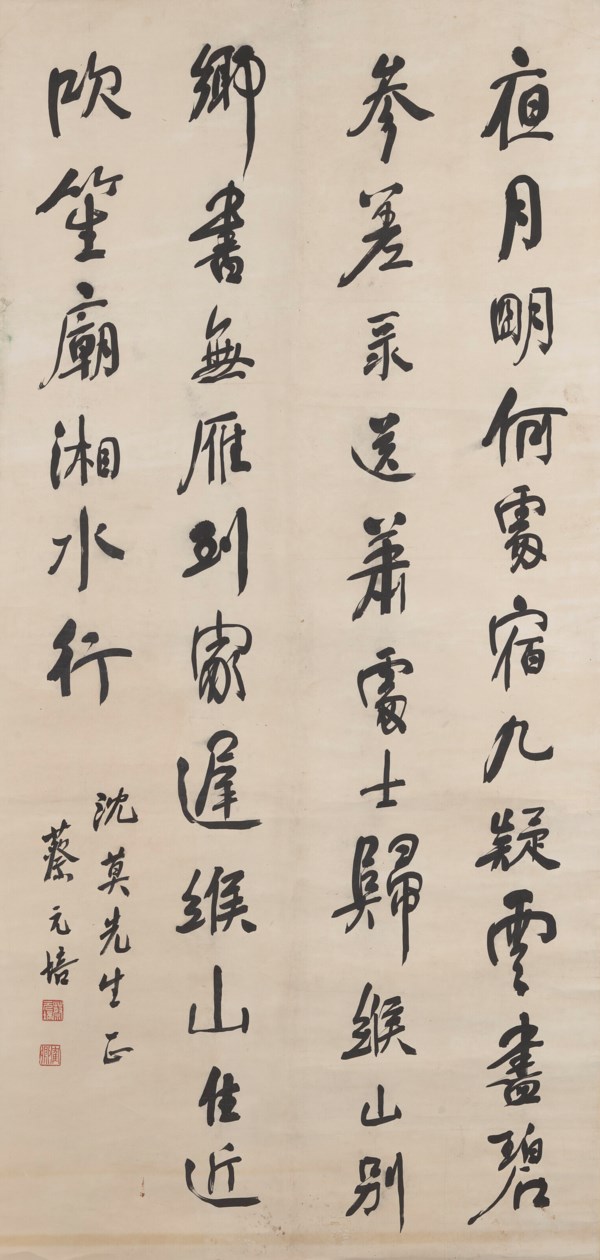 夜月朙何處宿九疑雲盡碧
參差录送蕭處士歸緱山別
鄉書無雁到家遲緱山住近
吹笙廟湘水行
沈莫先生正
蔡元培